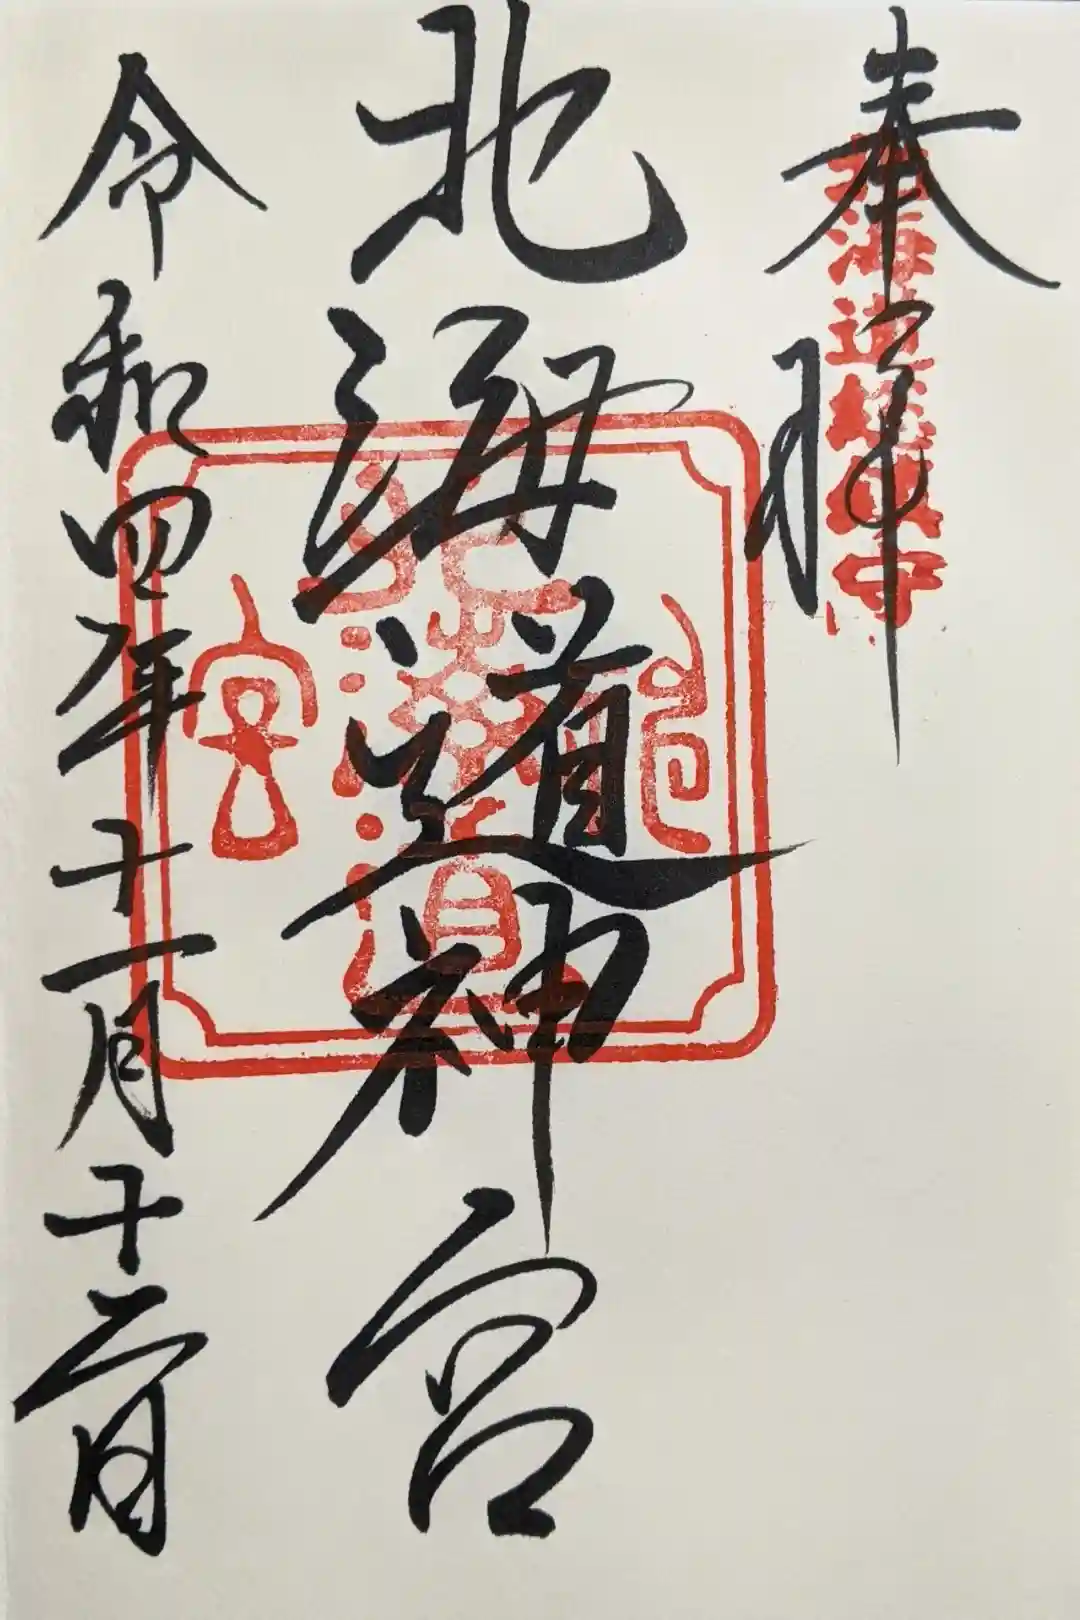 奉拝
北海道総鎮守
北海道神宮
北海道神宮
令和四年十一月十二日